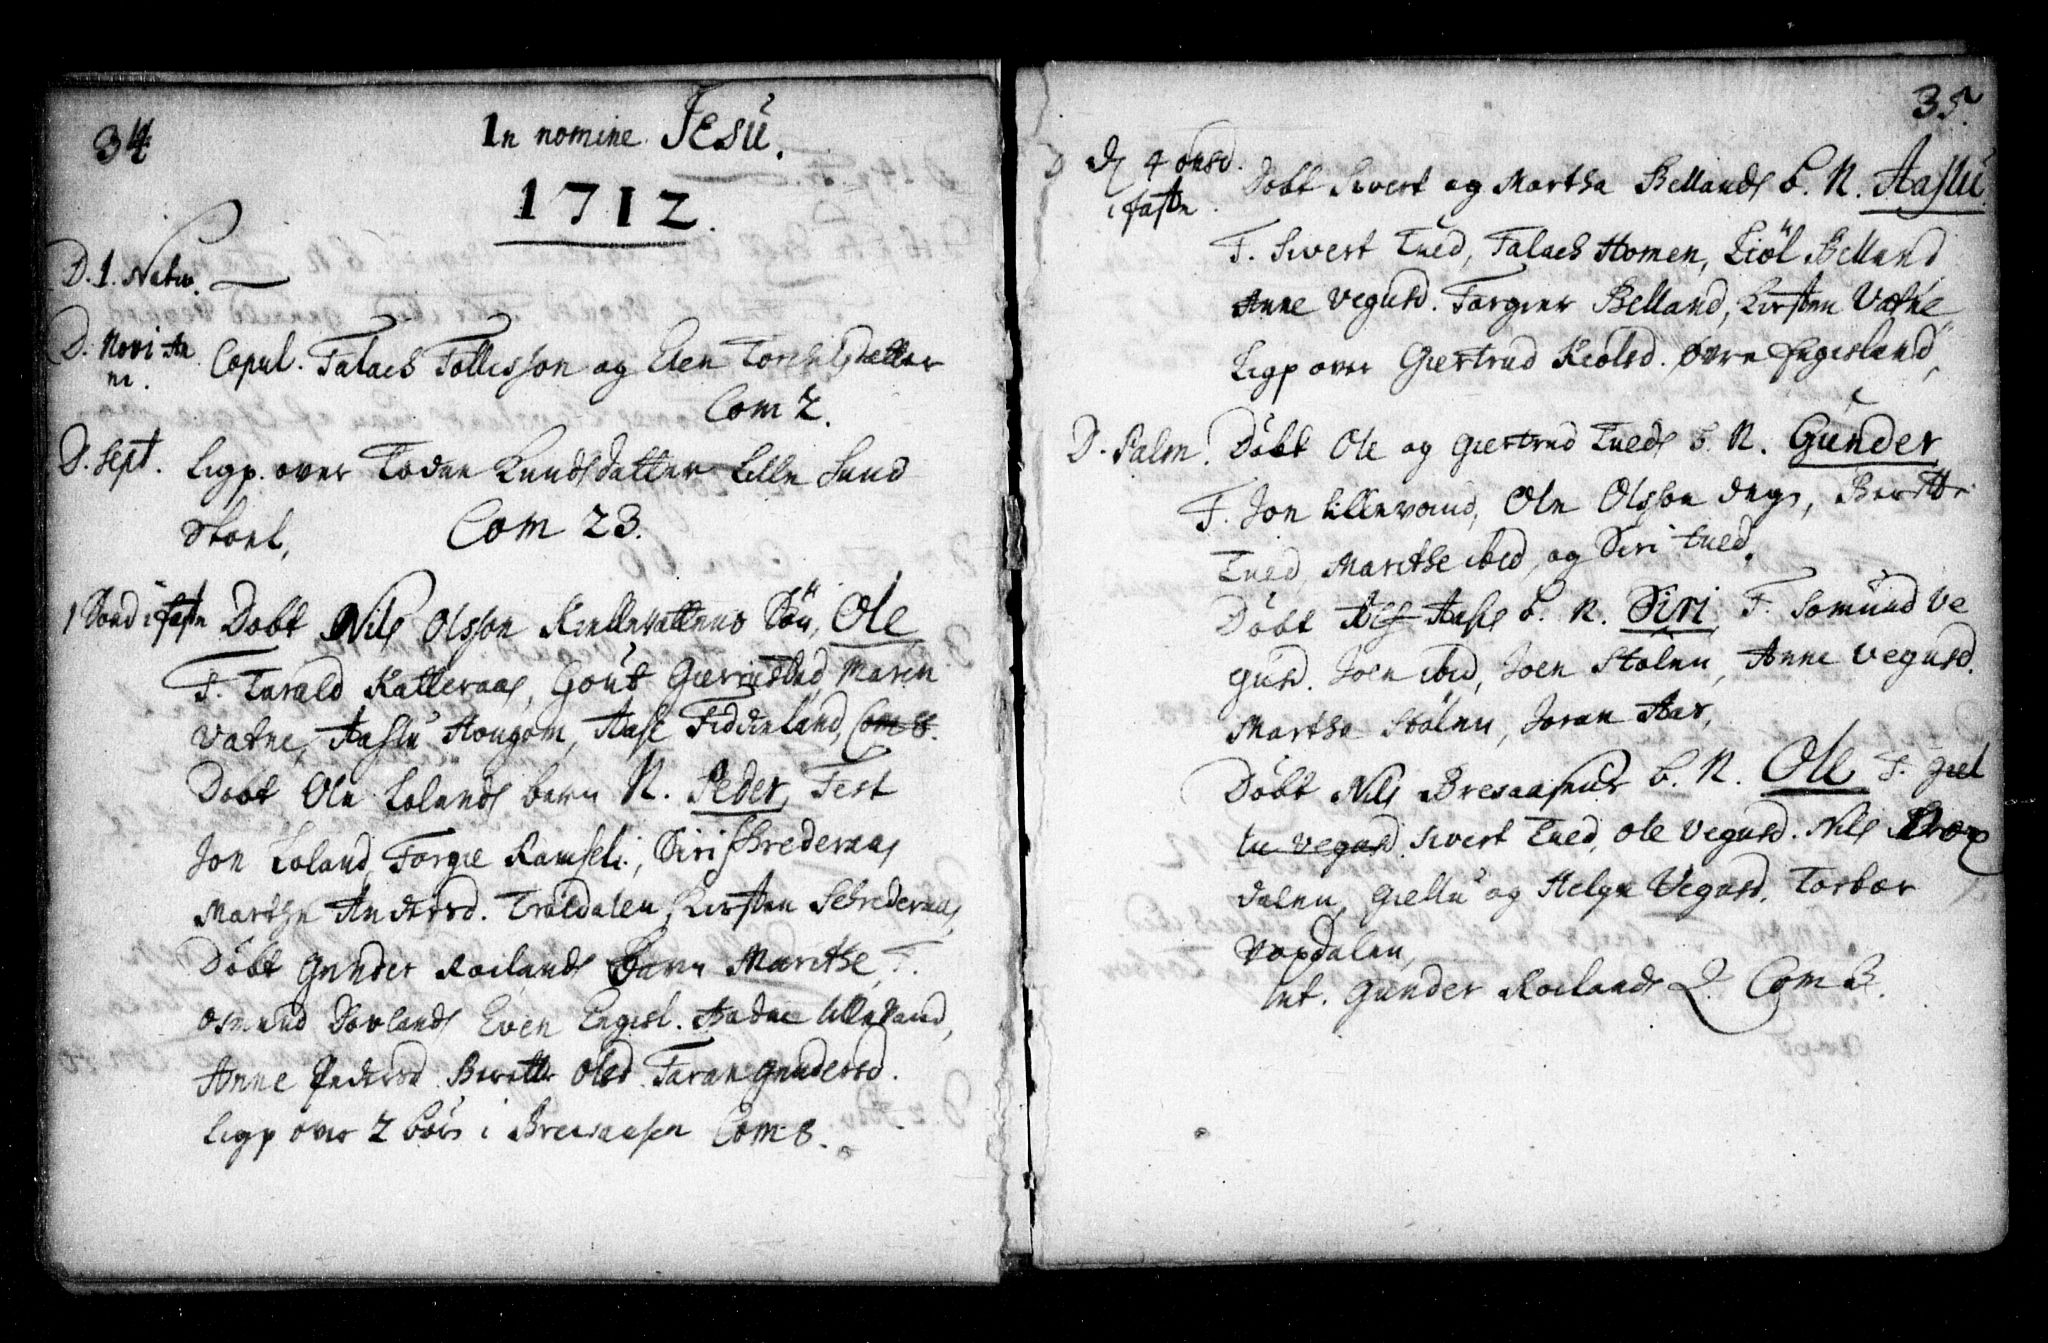 34
In nomine Jesu.
1712.
D. 1. Nativ.
D. Novi An
ni. Copul. Talach Tollisson og Elen Torchilsdatter
Com 2.
D. Sept. Ligp. over Todne Knudsdatter Lille Sund
Stoel, Com 23.
1 Sönd i fastn Döbt Nils Olsson Kiellevattens Sön, Ole
F. Tarald Kalleraas, Gout Gierrustad, Maren
Vatne, Aaslu Hougom, Aase Fiddieland, Com 8.
Döbt Ole Lolands barn N. Peder, Test
Jon Loland, Torgie Ramsel., Siri Schrederaas
Marthe Andersd. Traldalen, Kirsten Schrederaas,
Döbt Gunder Roilands Barn Marithe, F.
Osmund Dovlands Even Engisl. Aadne Lillevand,
Anne Pedersd. Berette Olsd. Taran Gundersd.
Ligp over 2 börn i Breisaasen Com 8.
35.
D 4 onsd.
i fastn. Döbt Sivert og Martha Bellands b. N. Aaslu.
F. Sivert Tued, Talach Homen, Kiöl Belland
Anne Vegusd. Torgier Belland, Kirsten Vatne
Ligp over Giertrud Keolsd. övre Engesland,
D. Palm. Döbt Ole og Giertrud Tueds b. N. Gunder
F. Jon Lillevand, Ole Olsson degn, Berette
Tued, Marithe ibid, og Siri Tued.
Döbt Aasse b. N. Siri, F. Somund Ve
gusd. Joen ibid, Joen Stölen, Anne Vegusd.
Martha Stölen, Joran Aas,
Döbt Nils Breisaasens b. N. Ole F. Giel
lu Vegusd. Sivert Tued, Ole Vegusd. Nils
dalen, Giellu og Helge Vegusd. Torbor
Vopdalen,
Int. Gunder Roilands Q. Com 3.